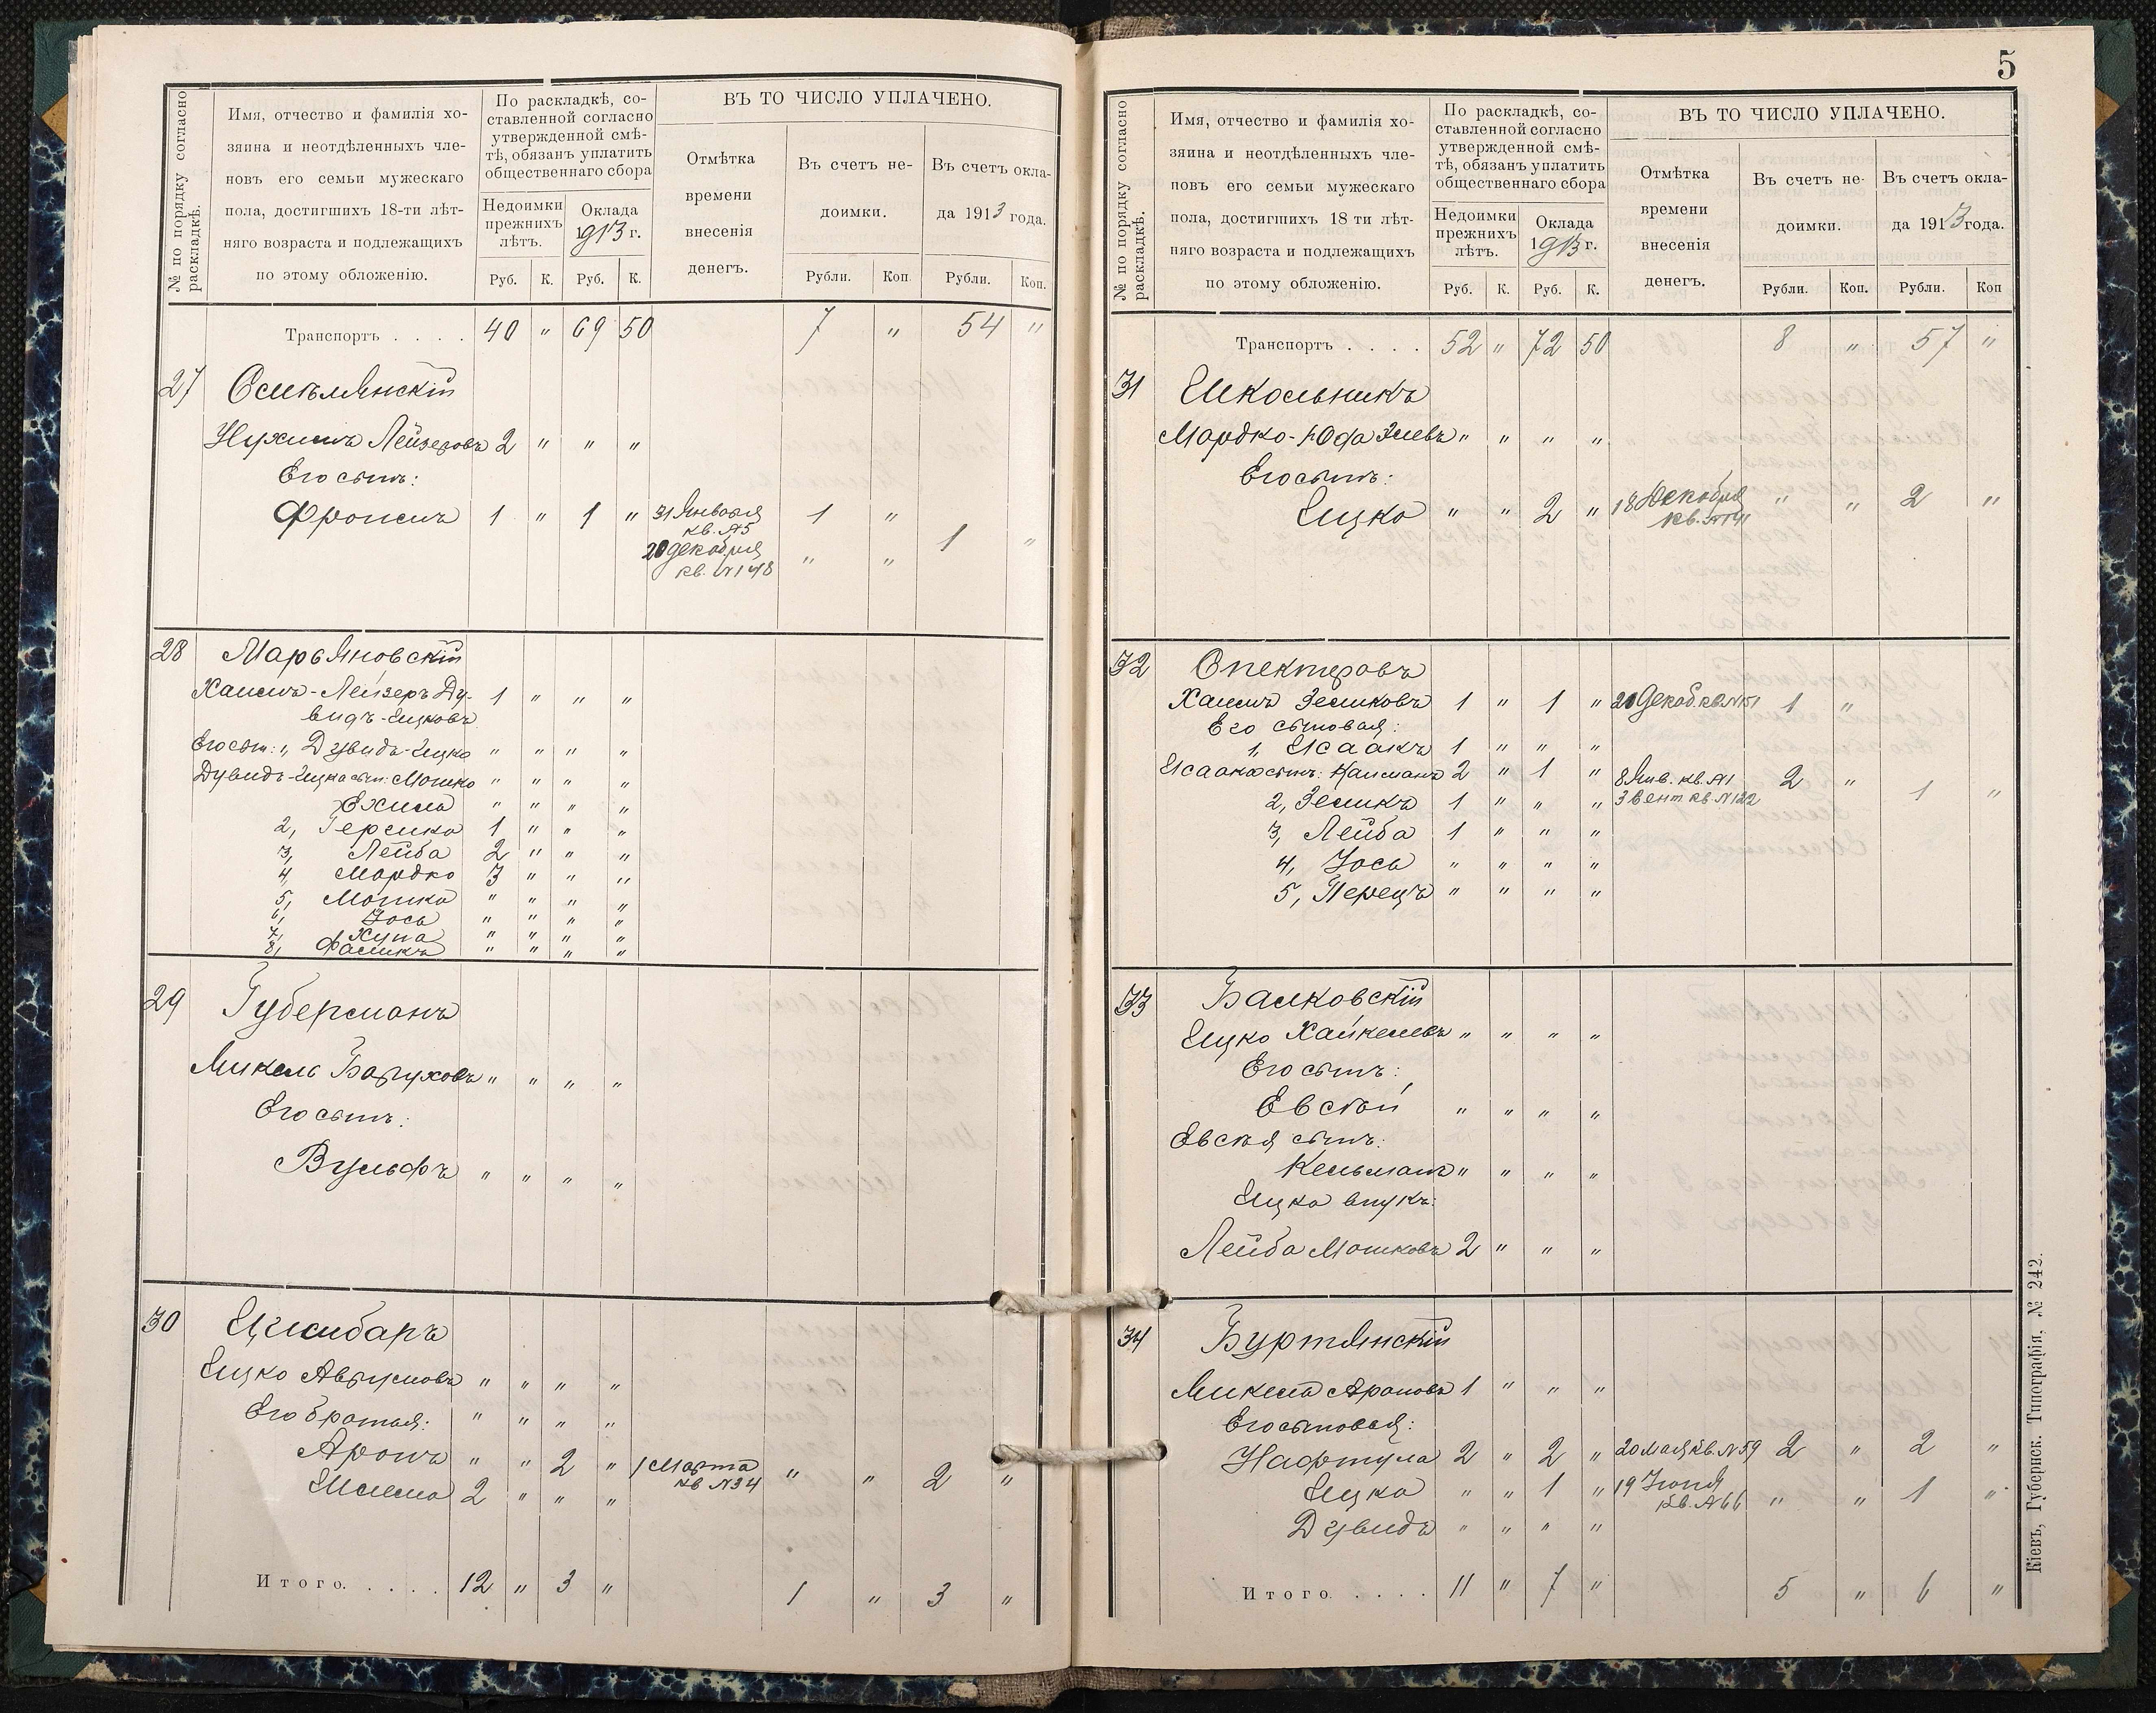 № по порядку согласно раскладкѣ.
Имя, отчество и фамилія хо-
зяина и неотдѣленныхъ чле-
новъ его семьи мужескаго
пола, достигшихъ 18-ти лѣт-
няго возраста и подлежащихъ
по этому обложенію.
По раскладкѣ, со-
ставленной согласно
утвержденной смѣ-
тѣ, обязанъ уплатить
общественнаго сбора
Недоимки
прежнихъ
лѣтъ.
Оклада
1913 г.
Руб. К. Руб. К.
ВЪ ТО ЧИСЛО УПЛАЧЕНО.
Отмѣтка
времени
внесенія
денегъ.
Въ счетъ не-
доимки.
Въ счетъ окла-
да 1913 года.
Рубли. Коп. Рубли. Коп.
Транспортъ . . . . 40 " 69 50 7 " 54 "
27 Смѣлянскій
Нухимъ Лейзеровъ 2 " " "
Его сынъ:
Фроимъ 1 " 1 " 31 Января 1 "
кв. №5
20 декабря " " 1 "
кв. №148
28 Марьяновскій
Хаимъ-Лейзеръ Ду- 1 " " "
видъ-Ицковъ
Его сын: 1, Дувидъ-Ицко " " " "
Дувидъ-Ицка сын: Мошко " " " "
Ехиль " " " "
2, Гершко 1 " " "
3, Лейба 2 " " "
4, Мордко 3 " " "
5, Мошко " " " "
6, Іось " " " "
7, Хуна " " " "
8, Фаликъ " " " "
29 Губерманъ
Микель Баруховъ " " " "
Его сынъ:
Вульфъ " " " "
30 Цимбаръ
Ицко Аврумовъ " " " "
Его братья: " " " "
Аронъ " " 2 " 1 Марта " " 2 "
кв №34
Шлема 2 " " "
Итого. . . . . 12 " 3 " 1 " 3 "
5
№ по порядку согласно раскладкѣ.
Имя, отчество и фамилія хо-
зяина и неотдѣленныхъ чле-
повъ его семьи мужескаго
пола, достигшихъ 18 ти лѣт-
няго возраста и подлежащихъ
по этому обложенію.
По раскладкѣ, со-
ставленной согласно
утвержденной смѣ-
тѣ, обязанъ уплатить
общественнаго сбора
Недоимки
прежнихъ
лѣтъ.
Оклада
1913 г.
Руб. К. Руб. К.
ВЪ ТО ЧИСЛО УПЛАЧЕНО.
Отмѣтка
времени
внесенія
денегъ.
Въ счетъ не-
доимки.
Въ счетъ окла-
да 1913 года.
Рубли. Коп. Рубли. Коп
Транспортъ . . . . 52 " 72 50 8 " 57 "
31 Школьникъ
Мордко-Юфа " " " "
Его сынъ:
Ицко " " 2 " 18 Декабря " " 2 "
кв. №141
32 Спекторъ
Хаимъ Зеликовъ 1 " 1 " 20 Декаб. кв. №151 1 "
Его сыновья:
1, Исаакъ 1 " " "
Исаака сынъ: Кальманъ 2 " 1 " 8 Янв. кв. №1 2 " 1 "
3 Сент кв. №122
2, Зеликъ 1 " " "
3, Лейба 1 " " "
4, Іось " " " "
5, Перецъ " " " "
33 Балковскій
Ицко Хайкелевъ " " " "
Его сынъ:
Евсѣй " " " "
Евсѣя сынъ:
Кельманъ " " " "
Ицка внукъ:
Лейба Мошковъ 2 " " "
34 Буртянскій
Микель Ароновъ 1 " " "
Его сыновья:
Нафтула 2 " 2 " 20 мая кв. №59 2 " 2 "
Ицко " " 1 " 19 Іюня " " 1 "
кв. №66
Дувидъ " " " "
Итого . . . . 11 " 7 " 5 " 6 "
Кіевъ, Губернск. Типографія, № 242.